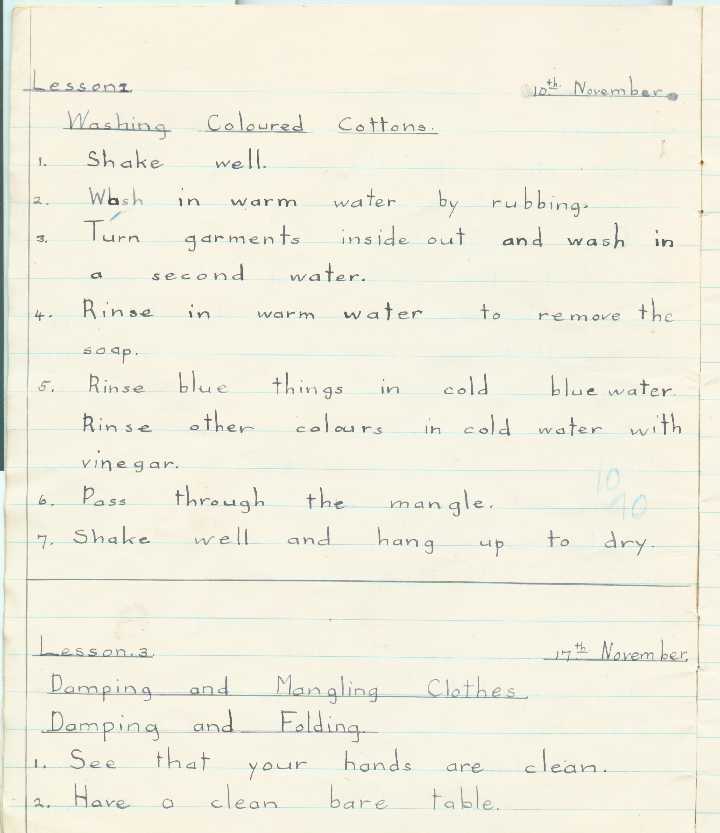 Lesson 2
10th November.
Washing Coloured Cottons.
1. Shake well.
2. Wash in warm water by rubbing.
3. Turn garments inside out and wash in
a second water.
4. Rinse in warm water to remove the
soap.
5. Rinse blue things in cold blue water.
Rinse other colours in cold water with
vinegar.
6. Pass through the mangle.
10
10
7. Shake well and hang up to dry.
Lesson.3.
17th November.
Damping and Mangling Clothes
Damping and Folding
1. See that your hands are clean.
2. Have a clean bare table.